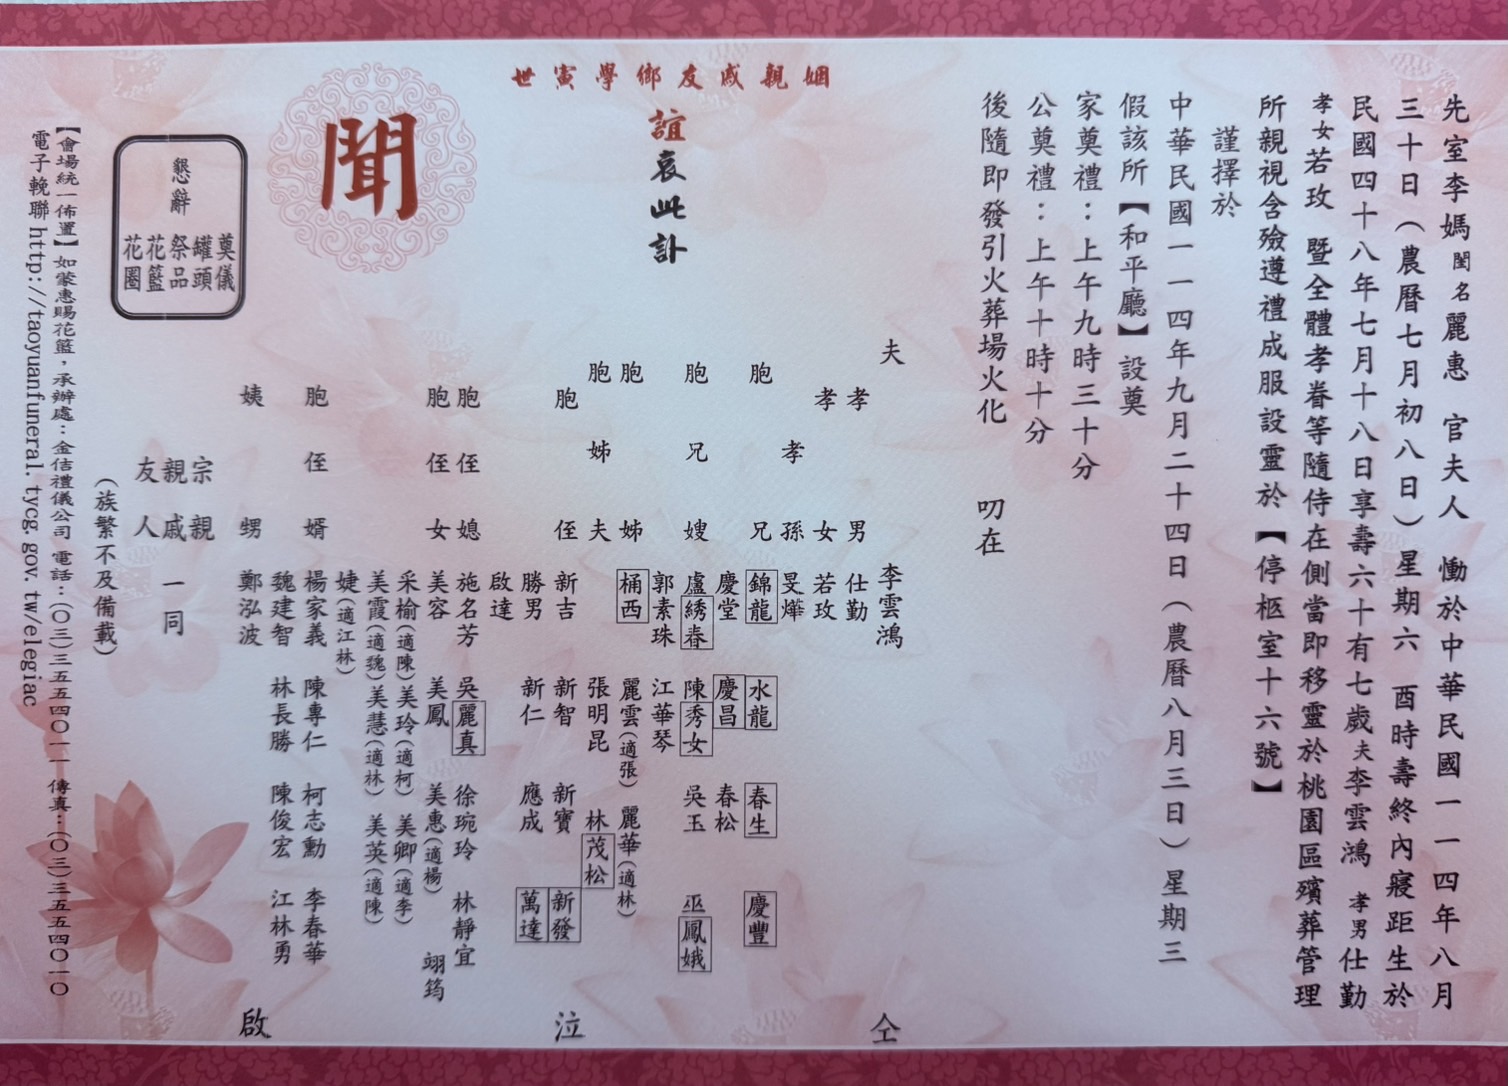 先室李媽閨名麗惠 官夫人 慟於中華民國一一四年八月
三十日（農曆七月初八日）星期六 酉時壽終內寢距生於
民國四十八年七月十八日享壽六十有七歲夫李雲鴻 孝男仕勤
孝女若玫 暨全體孝眷等隨侍在側當即移靈於桃園區殯葬管理
所親視含殮遵禮成服設靈於【停柩室十六號】
謹擇於
中華民國一一四年九月二十四日（農曆八月三日）星期三
假該所【和平廳】設奠
家奠禮：上午九時三十分
公奠禮：上午十時十分
後隨即發引火葬場火化 叨在
姻親戚友鄉學寅世
誼哀此訃
聞
夫 李雲鴻 仝
孝男 仕勤
孝女 若玫
孝孫 旻燁
胞兄 錦龍 水龍 春生 慶豐
慶堂 慶昌 春松
胞兄嫂 盧綉春 陳秀女 吳玉 巫鳳娥
郭素珠 江華琴
胞姊 桶西 麗雲(適張) 麗華(適林)
胞姊夫 張明昆 林茂松
胞侄 新吉 新智 新寶 新發 泣
勝男 新仁 應成 萬達
啟達
胞侄媳 施名芳 吳麗真 徐琬玲 林靜宜
胞侄女 美容 美鳳 美惠(適楊) 翊筠
采榆(適陳) 美玲(適柯) 美卿(適李)
美霞(適魏) 美慧(適林) 美英(適陳)
婕(適江林)
胞侄婿 楊家義 陳專仁 柯志勳 李春華
魏建智 林長勝 陳俊宏 江林勇
姨甥 鄭泓波 啟
宗親
親戚 一同
友人
(族繁不及備載)
懇辭
奠儀
罐頭
祭品
花籃
花圈
【會場統一佈置】如蒙惠賜花籃，承辦處：金佶禮儀公司 電話：(〇三)三五五四〇一一 傳真：(〇三)三五五四〇一〇
電子輓聯http://taoyuanfuneral.tycg.gov.tw/elegiac